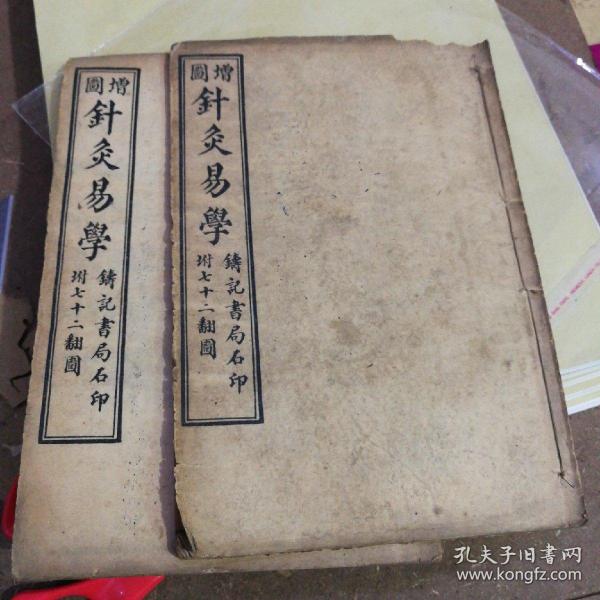 增圖
針灸易學
鑄記書局石印
坿七十二翻圖
增圖
針灸易學
鑄記書局石印
坿七十二翻圖
孔夫子旧书网
www.kongfz.com